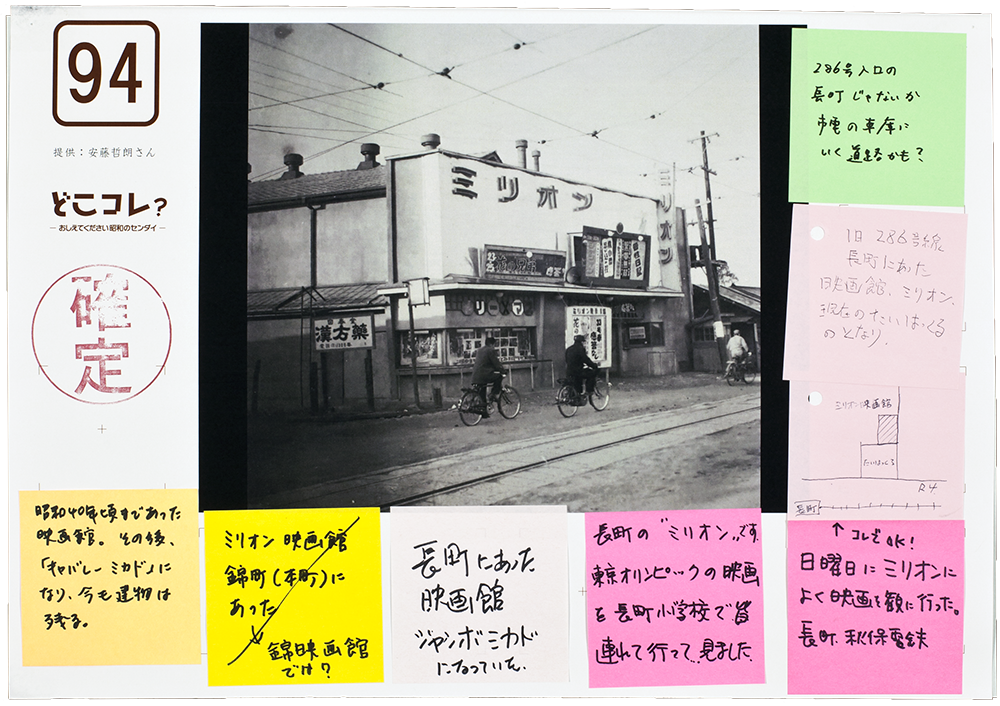 94
提供：安藤哲朗さん
どこコレ?
―おしえてください昭和のセンダイ―
確定
ミリオン
ミリオン
漢方薬
286号入口の
長町じゃないか
市電の車庫に
いく道路かも？
旧286号線
長町にあった
映画館、ミリオン、
現在のたいはっくる
のとなり.
ミリオン映画館
たいはっくる
R4
長町
↑コレでOK!
日曜日にミリオンに
よく映画を観に行った。
長町 秋保電鉄
昭和40年頃まであった
映画館。その後、
「キャバレーミカド」に
なり、今も建物は
残る。
ミリオン 映画館
錦町(本町)に
あった
錦映画館
では？
長町にあった
映画館
ジャンボミカド
になっていた.
長町の〝ミリオン〟です.
東京オリンピックの映画
を長町小学校で皆
連れて行って見ました.